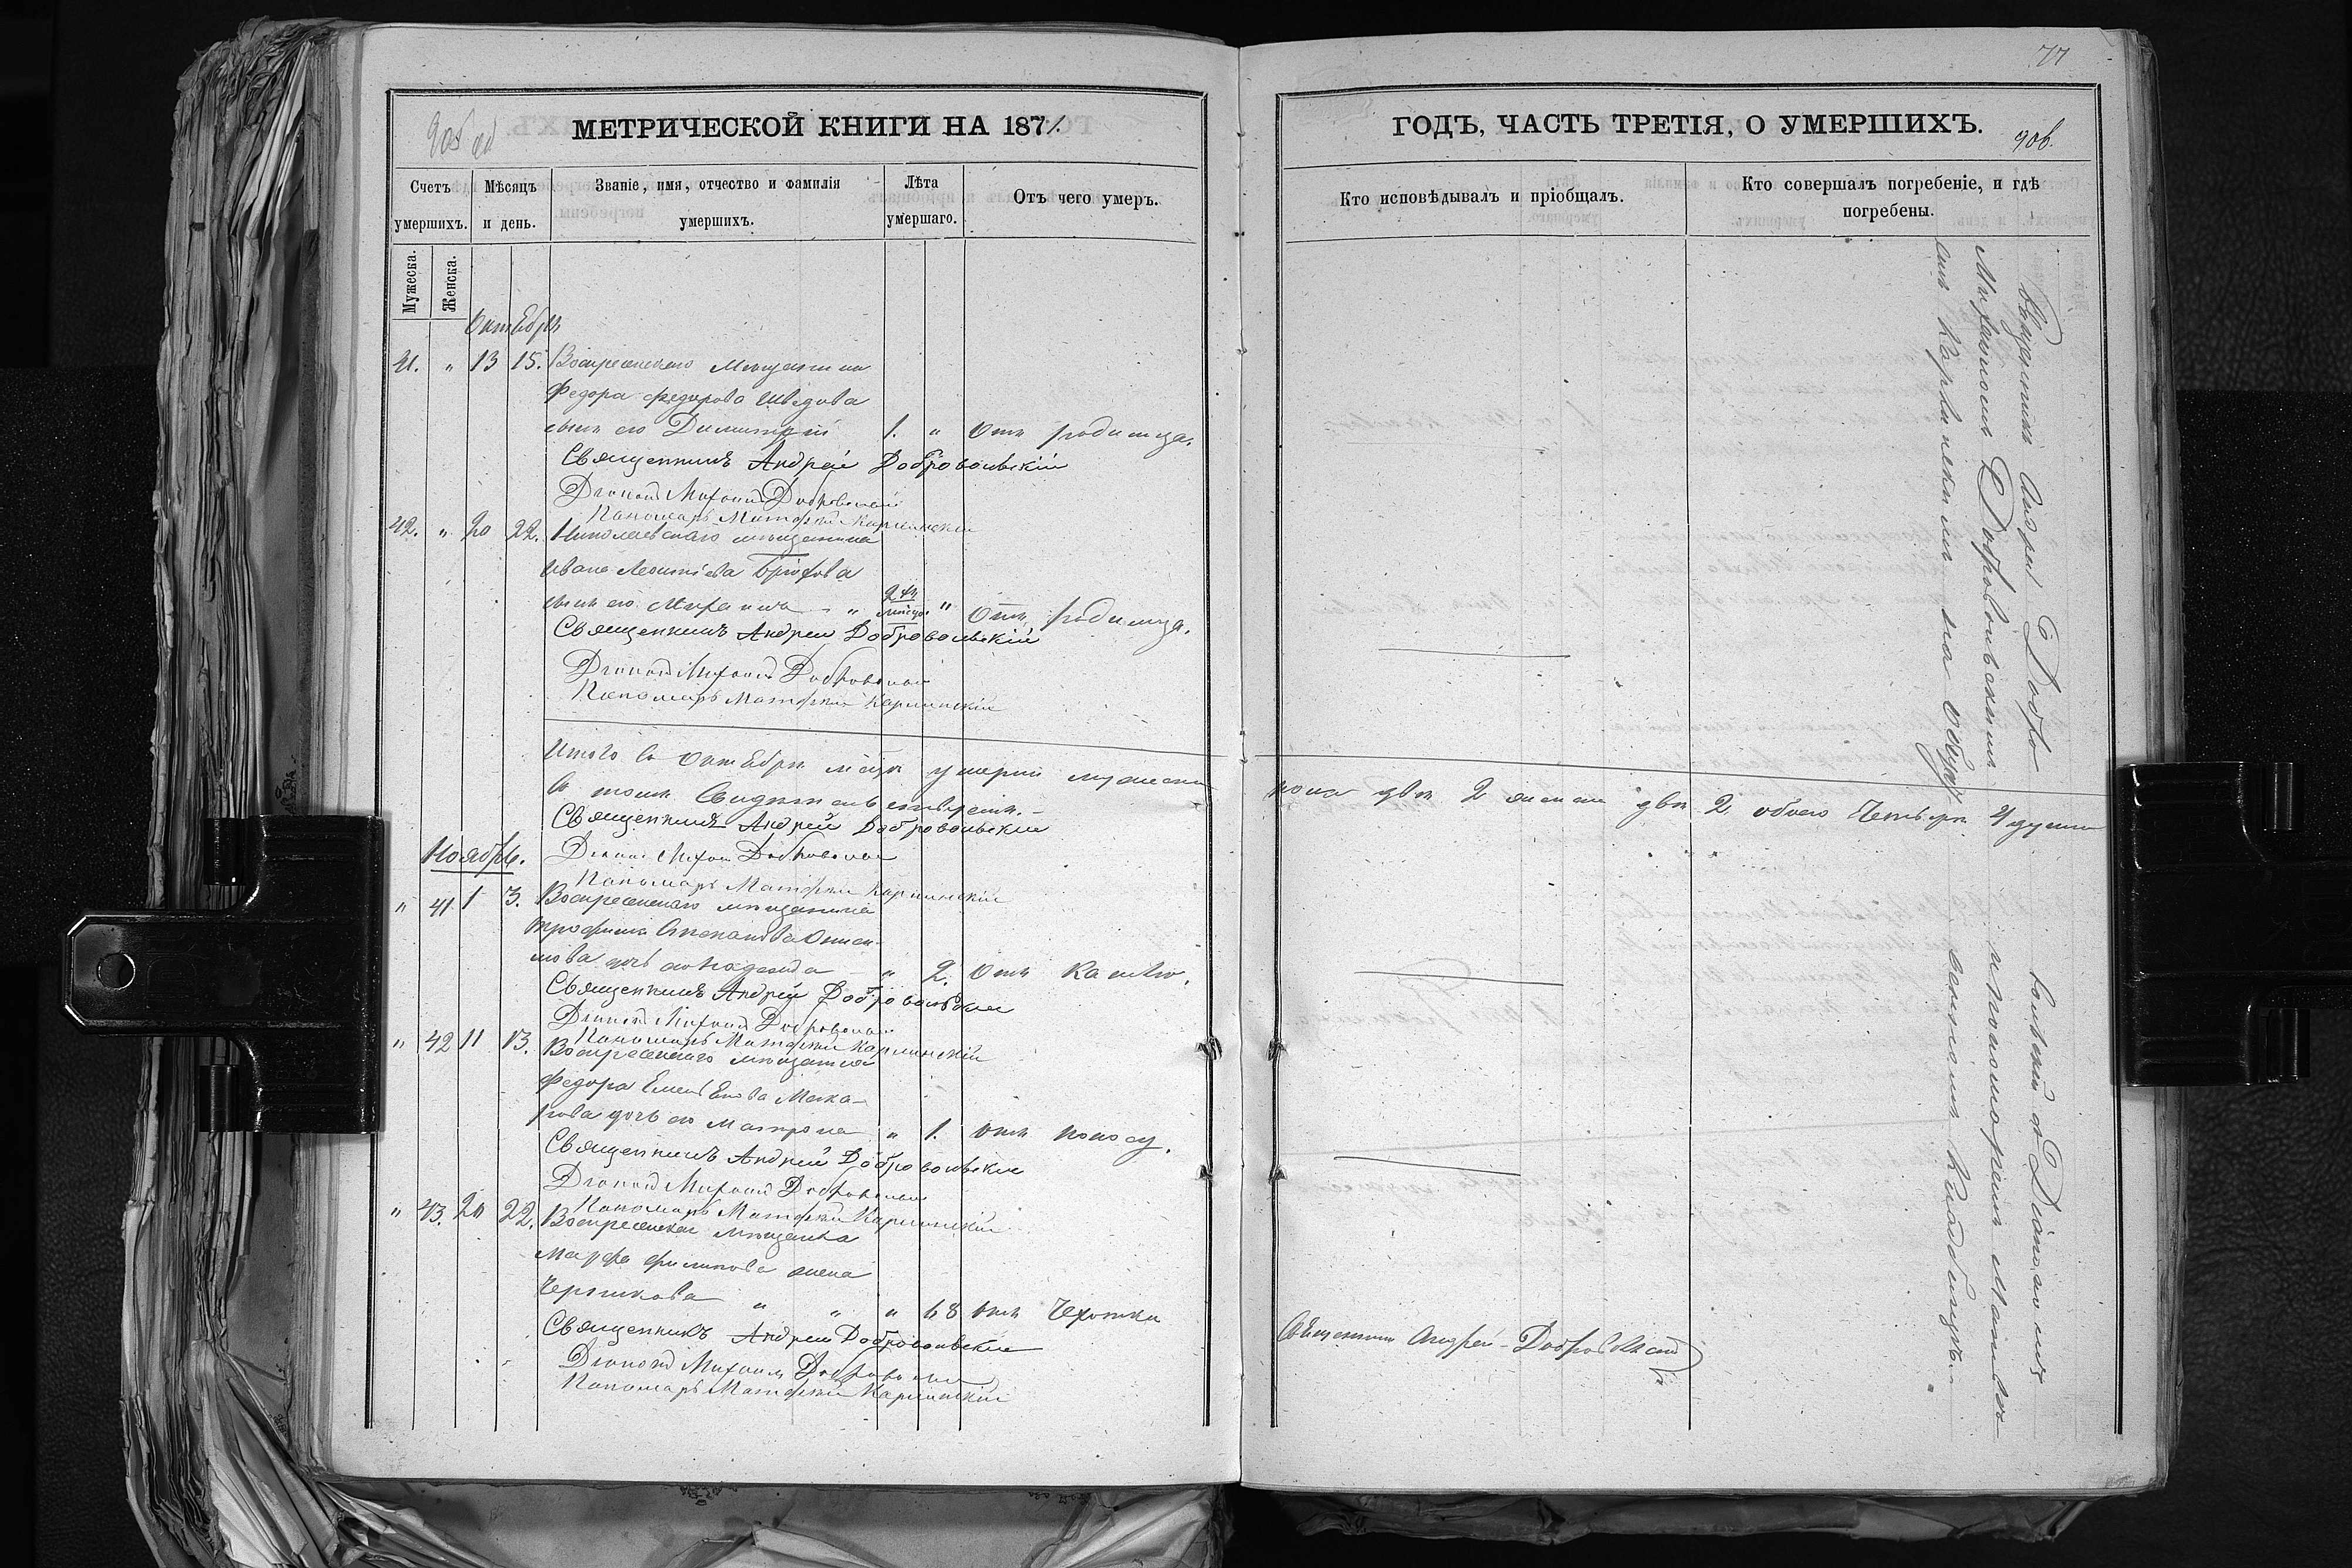 МЕТРИЧЕСКОЙ КНИГИ НА 1871.
Счетъ умершихъ.
Мѣсяцъ и день.
Званіе, имя, отчество и фамилія умершихъ.
Лѣта умершаго.
Отъ чего умеръ.
Мужеска.
Женска.
Октября
41. " 13 15. Воскресенскаго Мещанина
Федора Федорова Шведова
сынъ его Димитрій 1. " Отъ родимца.
Священникъ Андрей Добровольскій
Діаконъ Михаилъ Добровольскій
Пономарь Матфей Карпинскій
42. " 20 22. Николаевскаго мещанина
Ивана Леонтіева
сынъ его Михаилъ " 2 мѣсяц. " Отъ родимца.
Священникъ Андрей Добровольскій
Діаконъ Михаилъ Добровольскій
Пономарь Матфей Карпинскій
Итого въ Октябрѣ мѣсяцѣ умерло мужеска
въ томъ Свидѣтельствуемъ.
Священникъ Андрей Добровольскій
Ноябрь.
Діаконъ Михаилъ Добровольскій
Пономарь Матфей Карпинскій
" 41 1 3. Воскресенскаго мещанина
Трофима Степанова
дочь его Надежда " 2. Отъ Кашлю.
Священникъ Андрей Добровольскій
Діаконъ Михаилъ Добровольскій
Пономарь Матфей Карпинскій
" 42 11 13. Воскресенскаго мещанина
Федора Емельянова Мака-
рова дочь его Матрона " 1. отъ поносу.
Священникъ Андрей Добровольскій
Діаконъ Михаилъ Добровольскій
Пономарь Матфей Карпинскій
" 43. 20 22. Воскресенская мещанка
Марфа Филипова жена
Черникова " " " 68 отъ Чехотки
Священникъ Андрей Добровольскій
Діаконъ Михаилъ Добровольскій
Пономарь Матфей Карпинскій
77
ГОДЪ, ЧАСТЬ ТРЕТІЯ, О УМЕРШИХЪ.
906.
Кто исповѣдывалъ и пріобщалъ.
Кто совершалъ погребеніе, и гдѣ погребены.
Священникъ Андрей Добровольскій съ Діакономъ
Михаиломъ Добровольскимъ и пономаремъ Матвѣ-
емъ Карпинскимъ на общественномъ кладбищѣ.
пола два 2 женска два 2. обоего Четыре 4 души
Священникъ Андрей Добровольскій